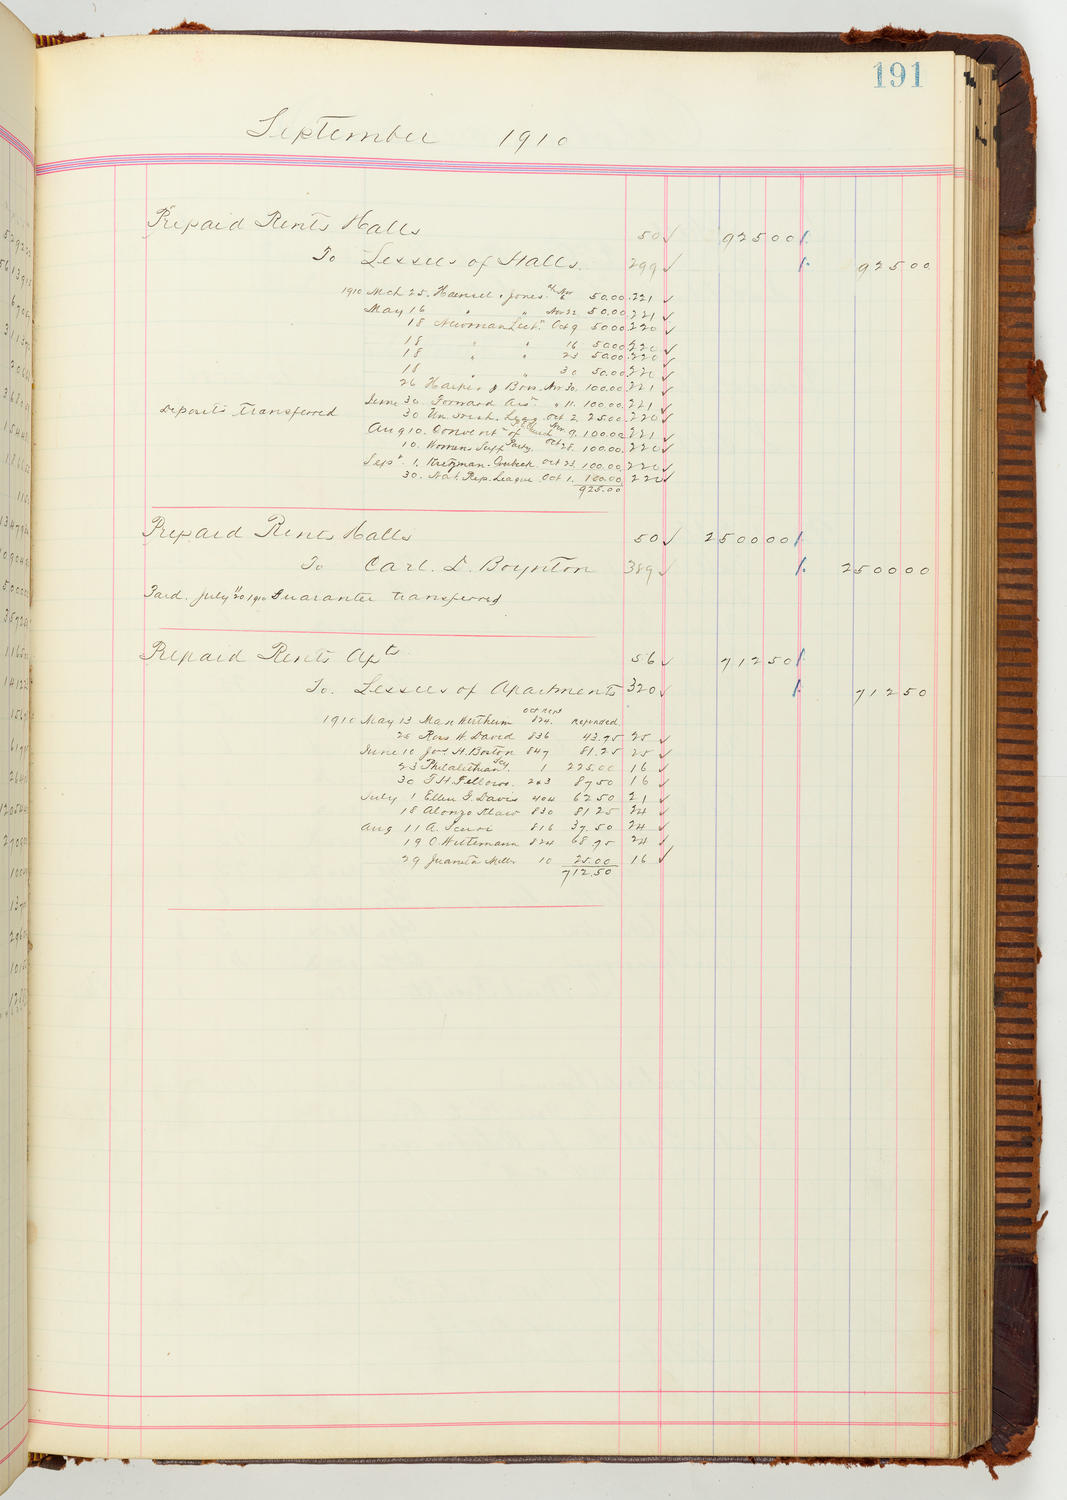 191
September 1910
Prepaid Rents Halls 50 ✓ 925 00
To Lessees of Halls. 299 ✓ 925 00
1910 Mch 25. Haensel & Jones. Nov 6 50.00 221 ✓
May 16 " " Nov 22 50.00 221 ✓
18 Newman Lect. Oct 9 50.00 220 ✓
18 " " 16 50.00 220 ✓
18 " " 23 50.00 220 ✓
18 " " 30 50.00 220 ✓
26 Harper & Bros. Nov 30. 100.00 221 ✓
June 30. Forward Assn. " 11. 100.00 221 ✓
Deposits Transferred 30 Un. Irish. Oct 2. 25.00 220 ✓
Aug 10. Convent of Church Nov 9. 100.00 221 ✓
10. Womens Suff Party. Oct 28. 100.00 220 ✓
Sept. 1. Oct 23. 100.00 220 ✓
30. Nat. Rep. League Oct 1. 100.00 220 ✓
925.00
Prepaid Rents Halls 50 ✓ 2500 00
To Carl. D. Boynton 389 ✓ 2500 00
Paid. July 20, 1910 Guarantee transferred
Prepaid Rents Apts 56 ✓ 712 50
To. Lessees of Apartments 320 ✓ 712 50
Oct Rent
1910 May 13 Max Wertheim 824. Refunded
28 Ross W. David 836 43.75 25 ✓
June 10 Jos H. Boston 847 81.25 25 ✓
23 Philalethian Scy. 1 225.00 16 ✓
30 T. H. Fellows. 243 87.50 16 ✓
July 1 Ellen G. Davis 404 62.50 21 ✓
18 Alonzo Klaw 830 81.25 24 ✓
Aug 11 A. Scuri 816 37.50 24 ✓
19 O. Wittemann 824 68.75 24 ✓
29 Juanita Mills 10 25.00 16 ✓
712.50